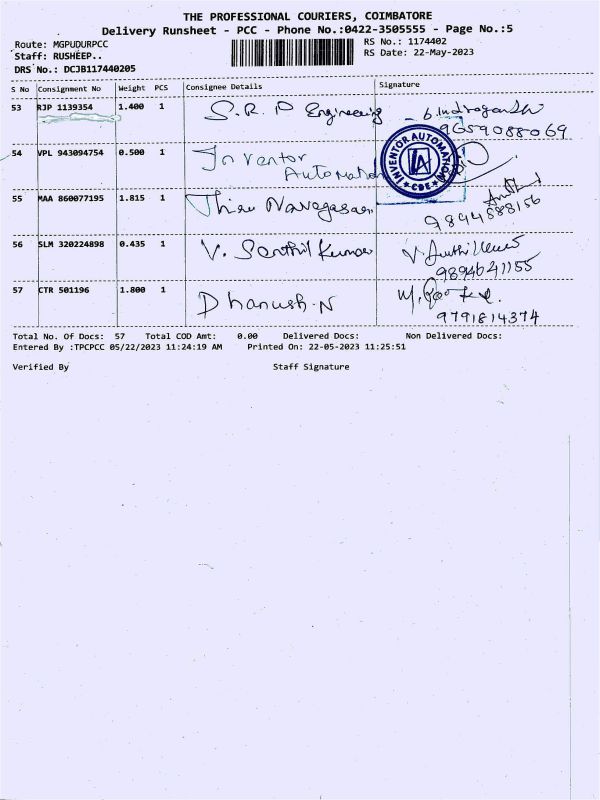 THE PROFESSIONAL COURIERS, COIMBATORE
Delivery Runsheet - PCC - Phone No.:0422-3505555 - Page No.:5
Route: MGPUDURPCC
RS No.: 1174402
Staff: RUSHEEP..
RS Date: 22-May-2023
DRS No.: DCJB117440205
S No Consignment No Weight PCS Consignee Details Signature
53 RJP 1139354 1.400 1 S.R.P Engineering
9659088069
54 VPL 943094754 0.500 1 Inventor
Automation
INVENTOR AUTOMATION
IA
CBE
55 MAA 860077195 1.815 1
9894888156
56 SLM 320224898 0.435 1 V. Senthil Kumar
9894641155
57 CTR 501196 1.800 1 Dhanush.N
9791814374
Total No. Of Docs: 57 Total COD Amt: 0.00 Delivered Docs: Non Delivered Docs:
Entered By :TPCPCC 05/22/2023 11:24:19 AM Printed On: 22-05-2023 11:25:51
Verified By Staff Signature